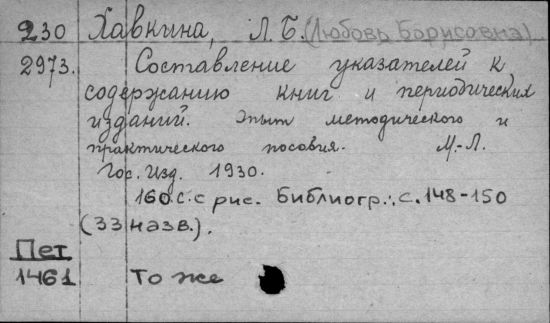 230 Хавкина, Л. Б. (Любовь Борисовна)
2973. Составление указателей к
содержанию книг и периодических
изданий. Опыт методического и
практического пособия. М.-Л.
Гос. Изд. 1930.
160 с. с рис. Библиогр.: с. 148-150
(33 назв.).
Пет
1461 То же